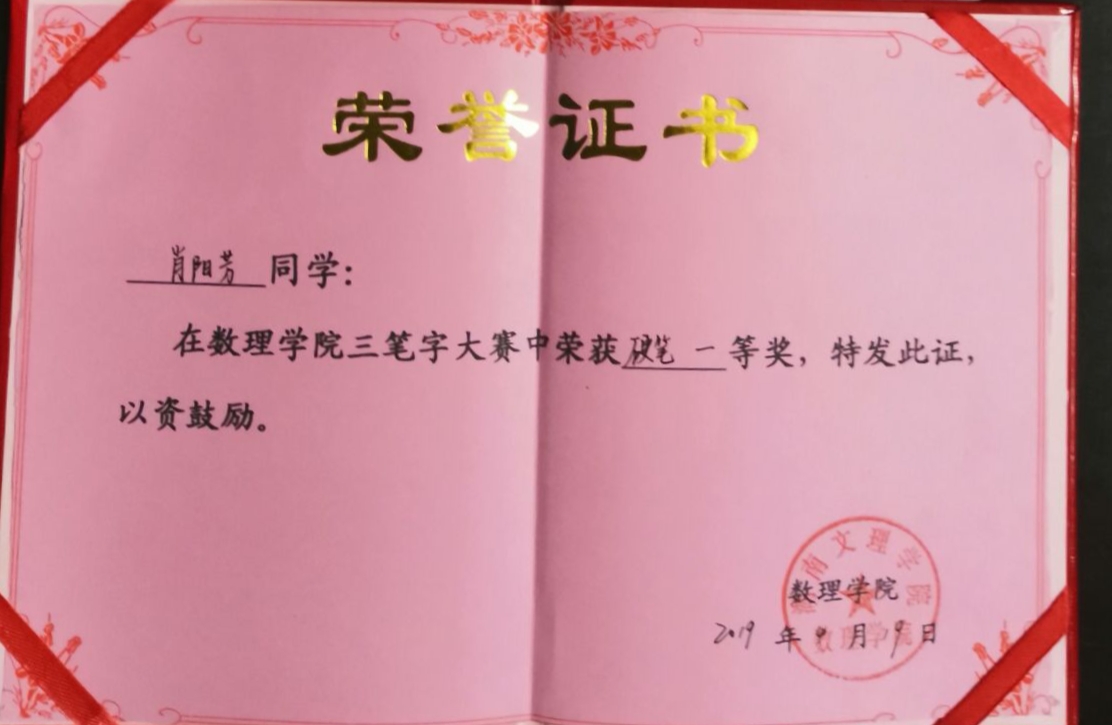 荣誉证书
肖阳芳同学：
在数理学院三笔字大赛中荣获硬笔 一等奖，特发此证，
以资鼓励。
南文理学院
数理学院
2019 年 9 月 19 日
数理学院